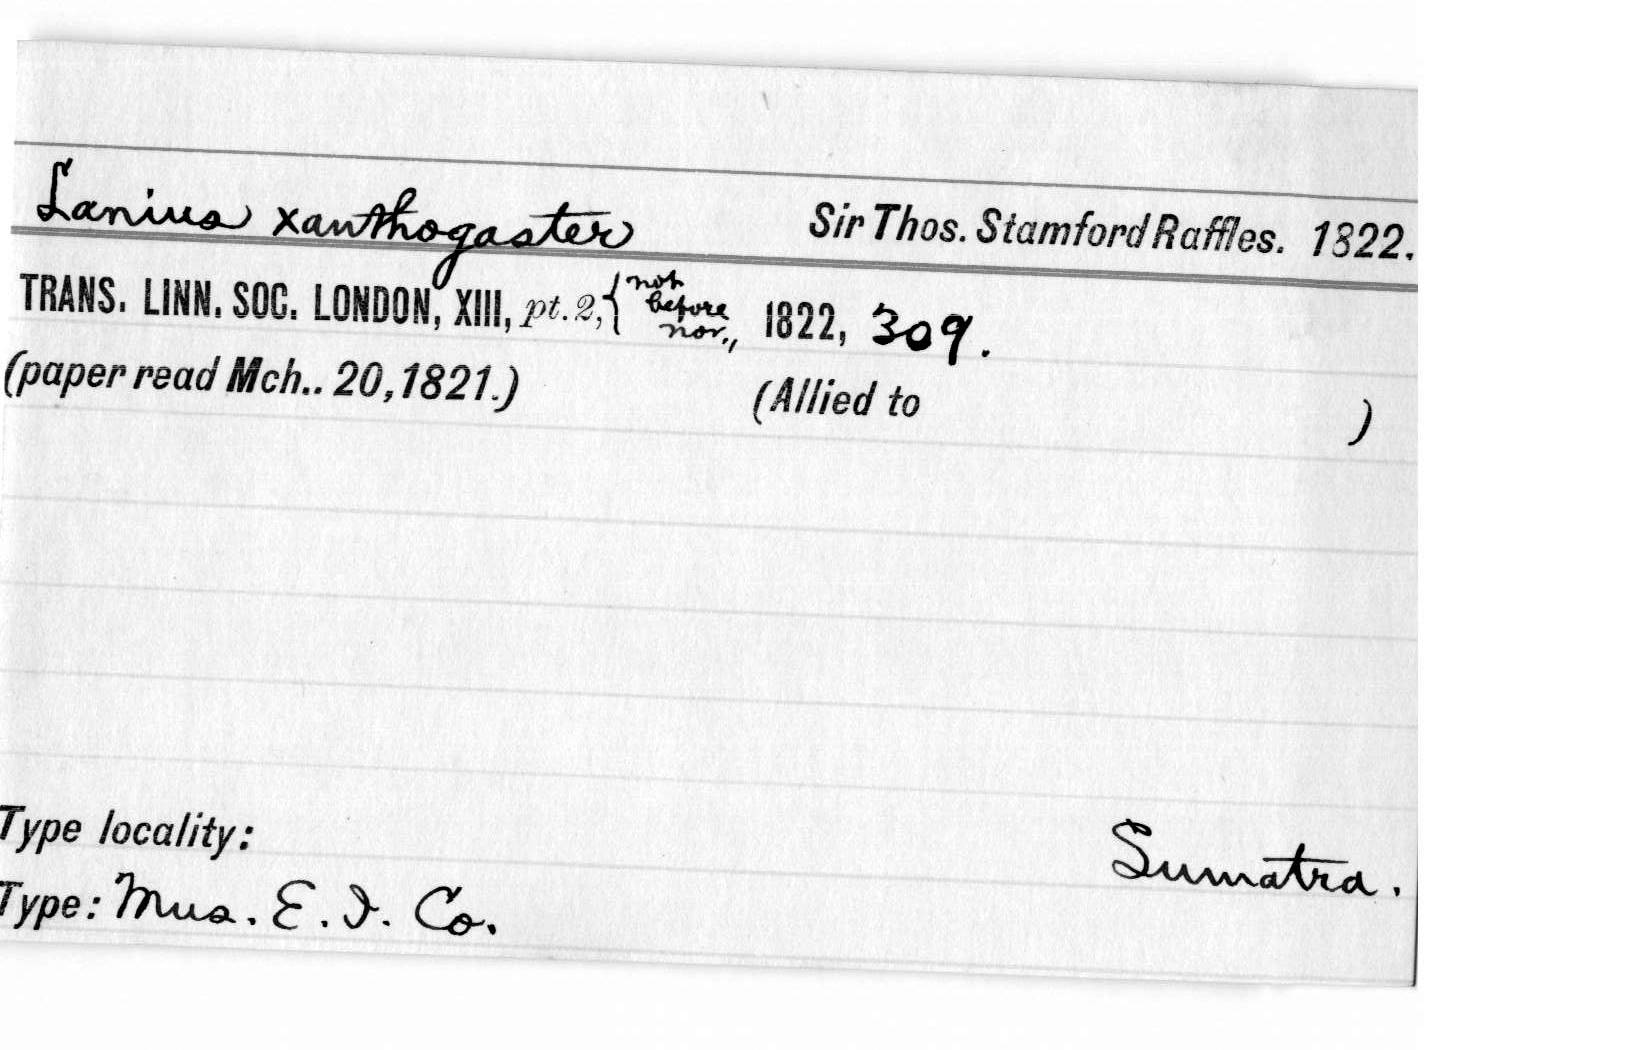 Lanius xanthogaster Sir Thos. Stamford Raffles. 1822.
TRANS. LINN. SOC. LONDON, XIII, pt. 2, { not before nov., 1822, 309.
(paper read Mch.. 20, 1821.) (Allied to )
Type locality: Sumatra.
Type: Mus. E. I. Co.